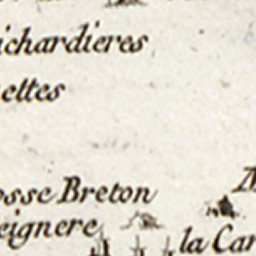 ichardieres
ettes
osse Breton
eignere
la Car